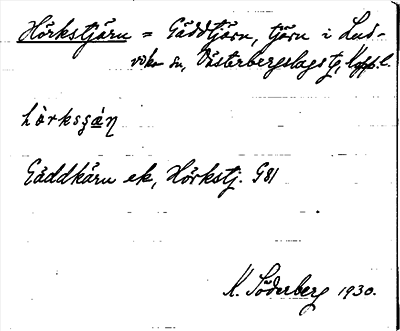 Hörkstjärn = Gäddtjärn, tjärn i Lud-
vika sn, Västerbergslags tg, Koppb. l.
hö̀rksʒán
Gäddkärn ek, Hörkstj. G81
K. Söderberg 1930.